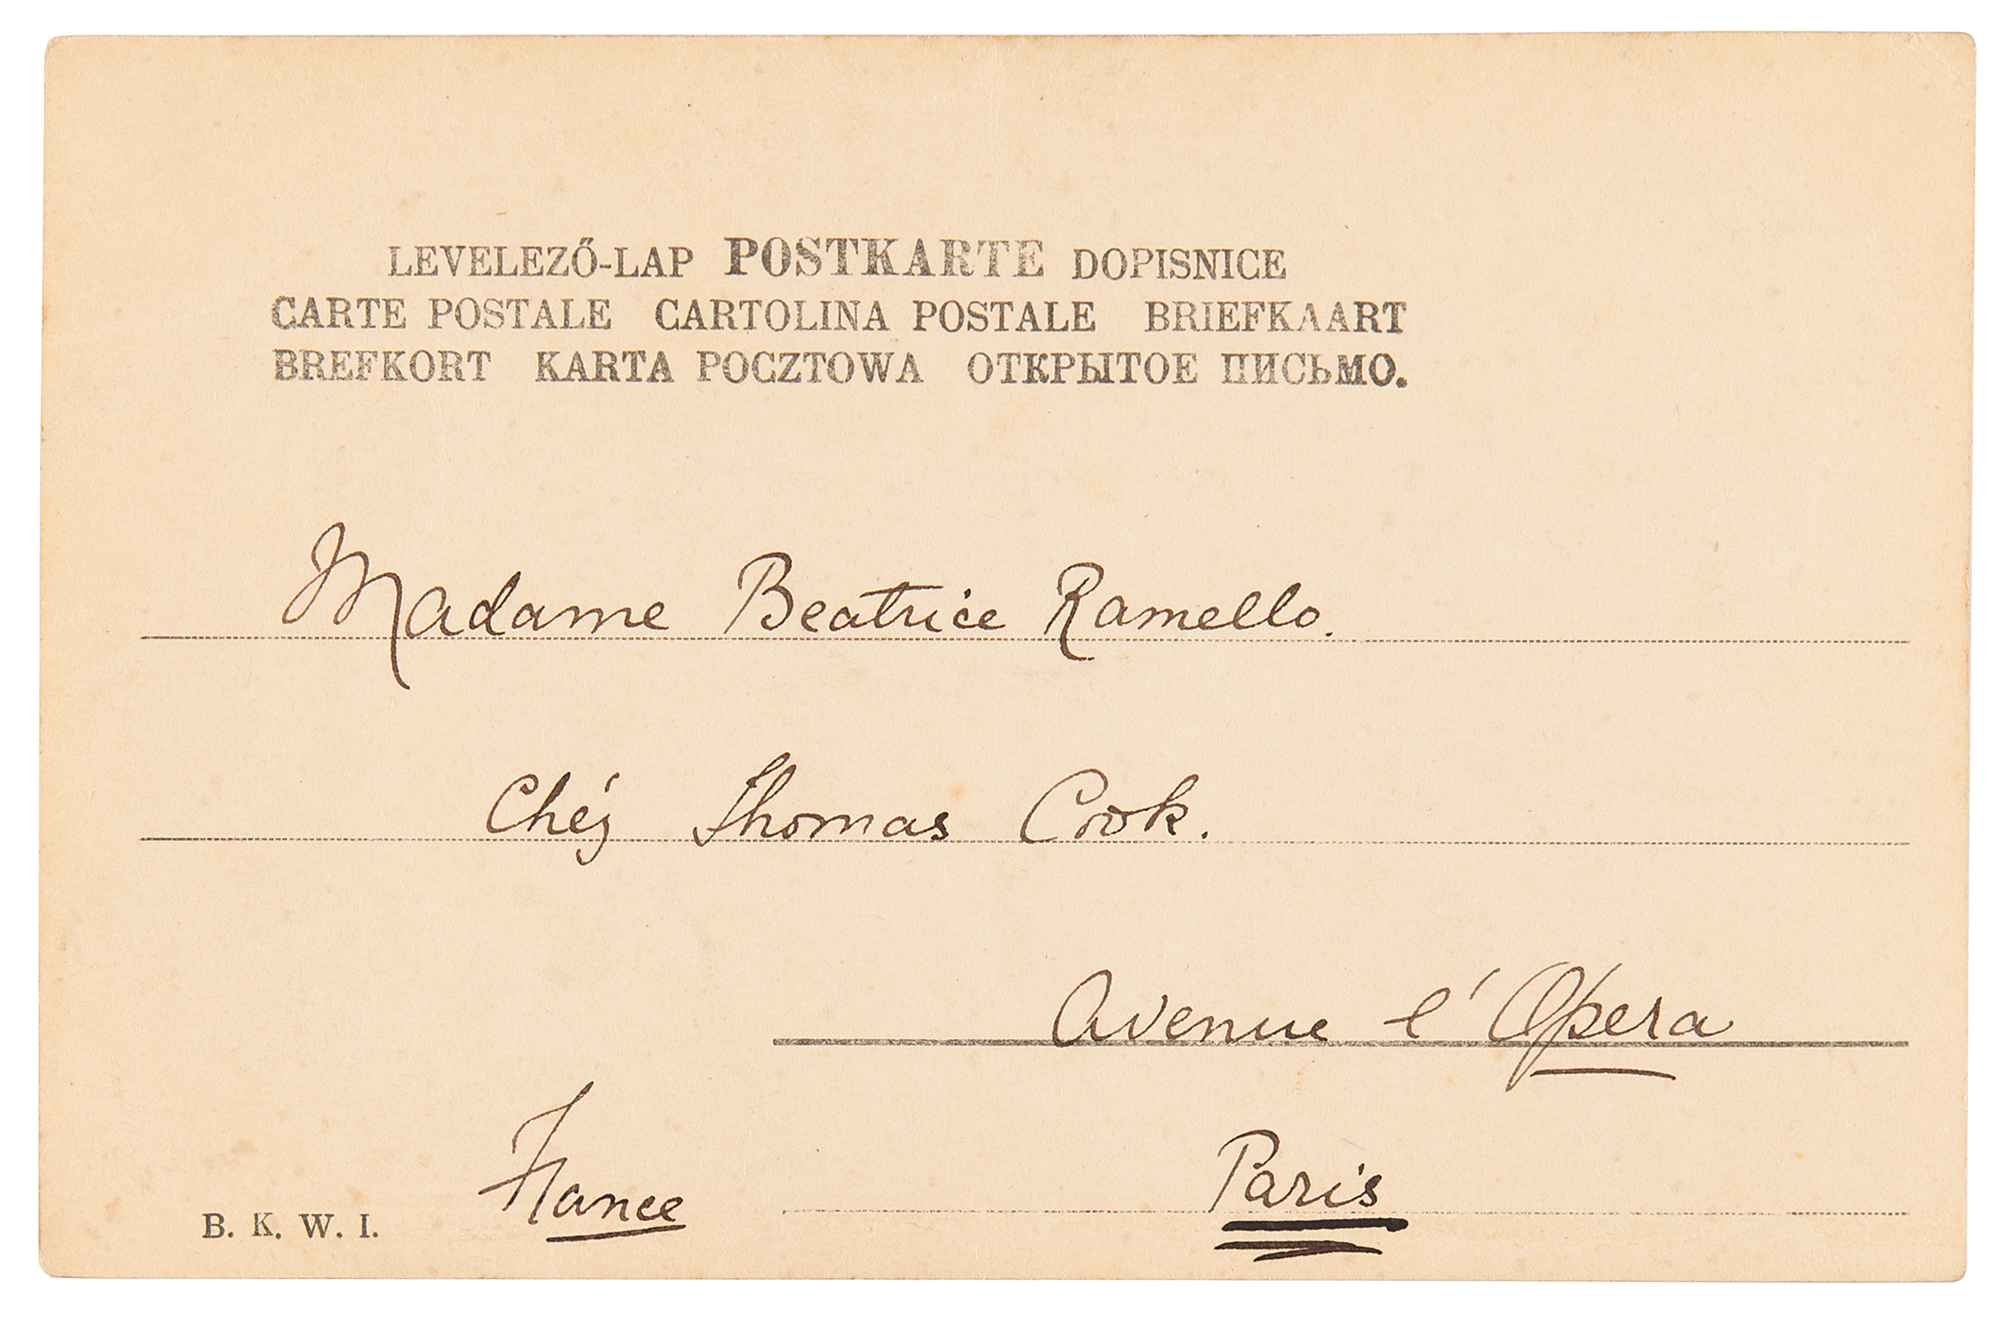 LEVELEZŐ-LAP POSTKARTE DOPISNICE
CARTE POSTALE CARTOLINA POSTALE BRIEFKAART
BREFKORT KARTA POCZTOWA ОТКРЫТОЕ ПИСЬМО.
Madame Beatrice Ramello.
Chéz Thomas Cook.
Avenue l'Opera
France Paris
B. K. W. I.